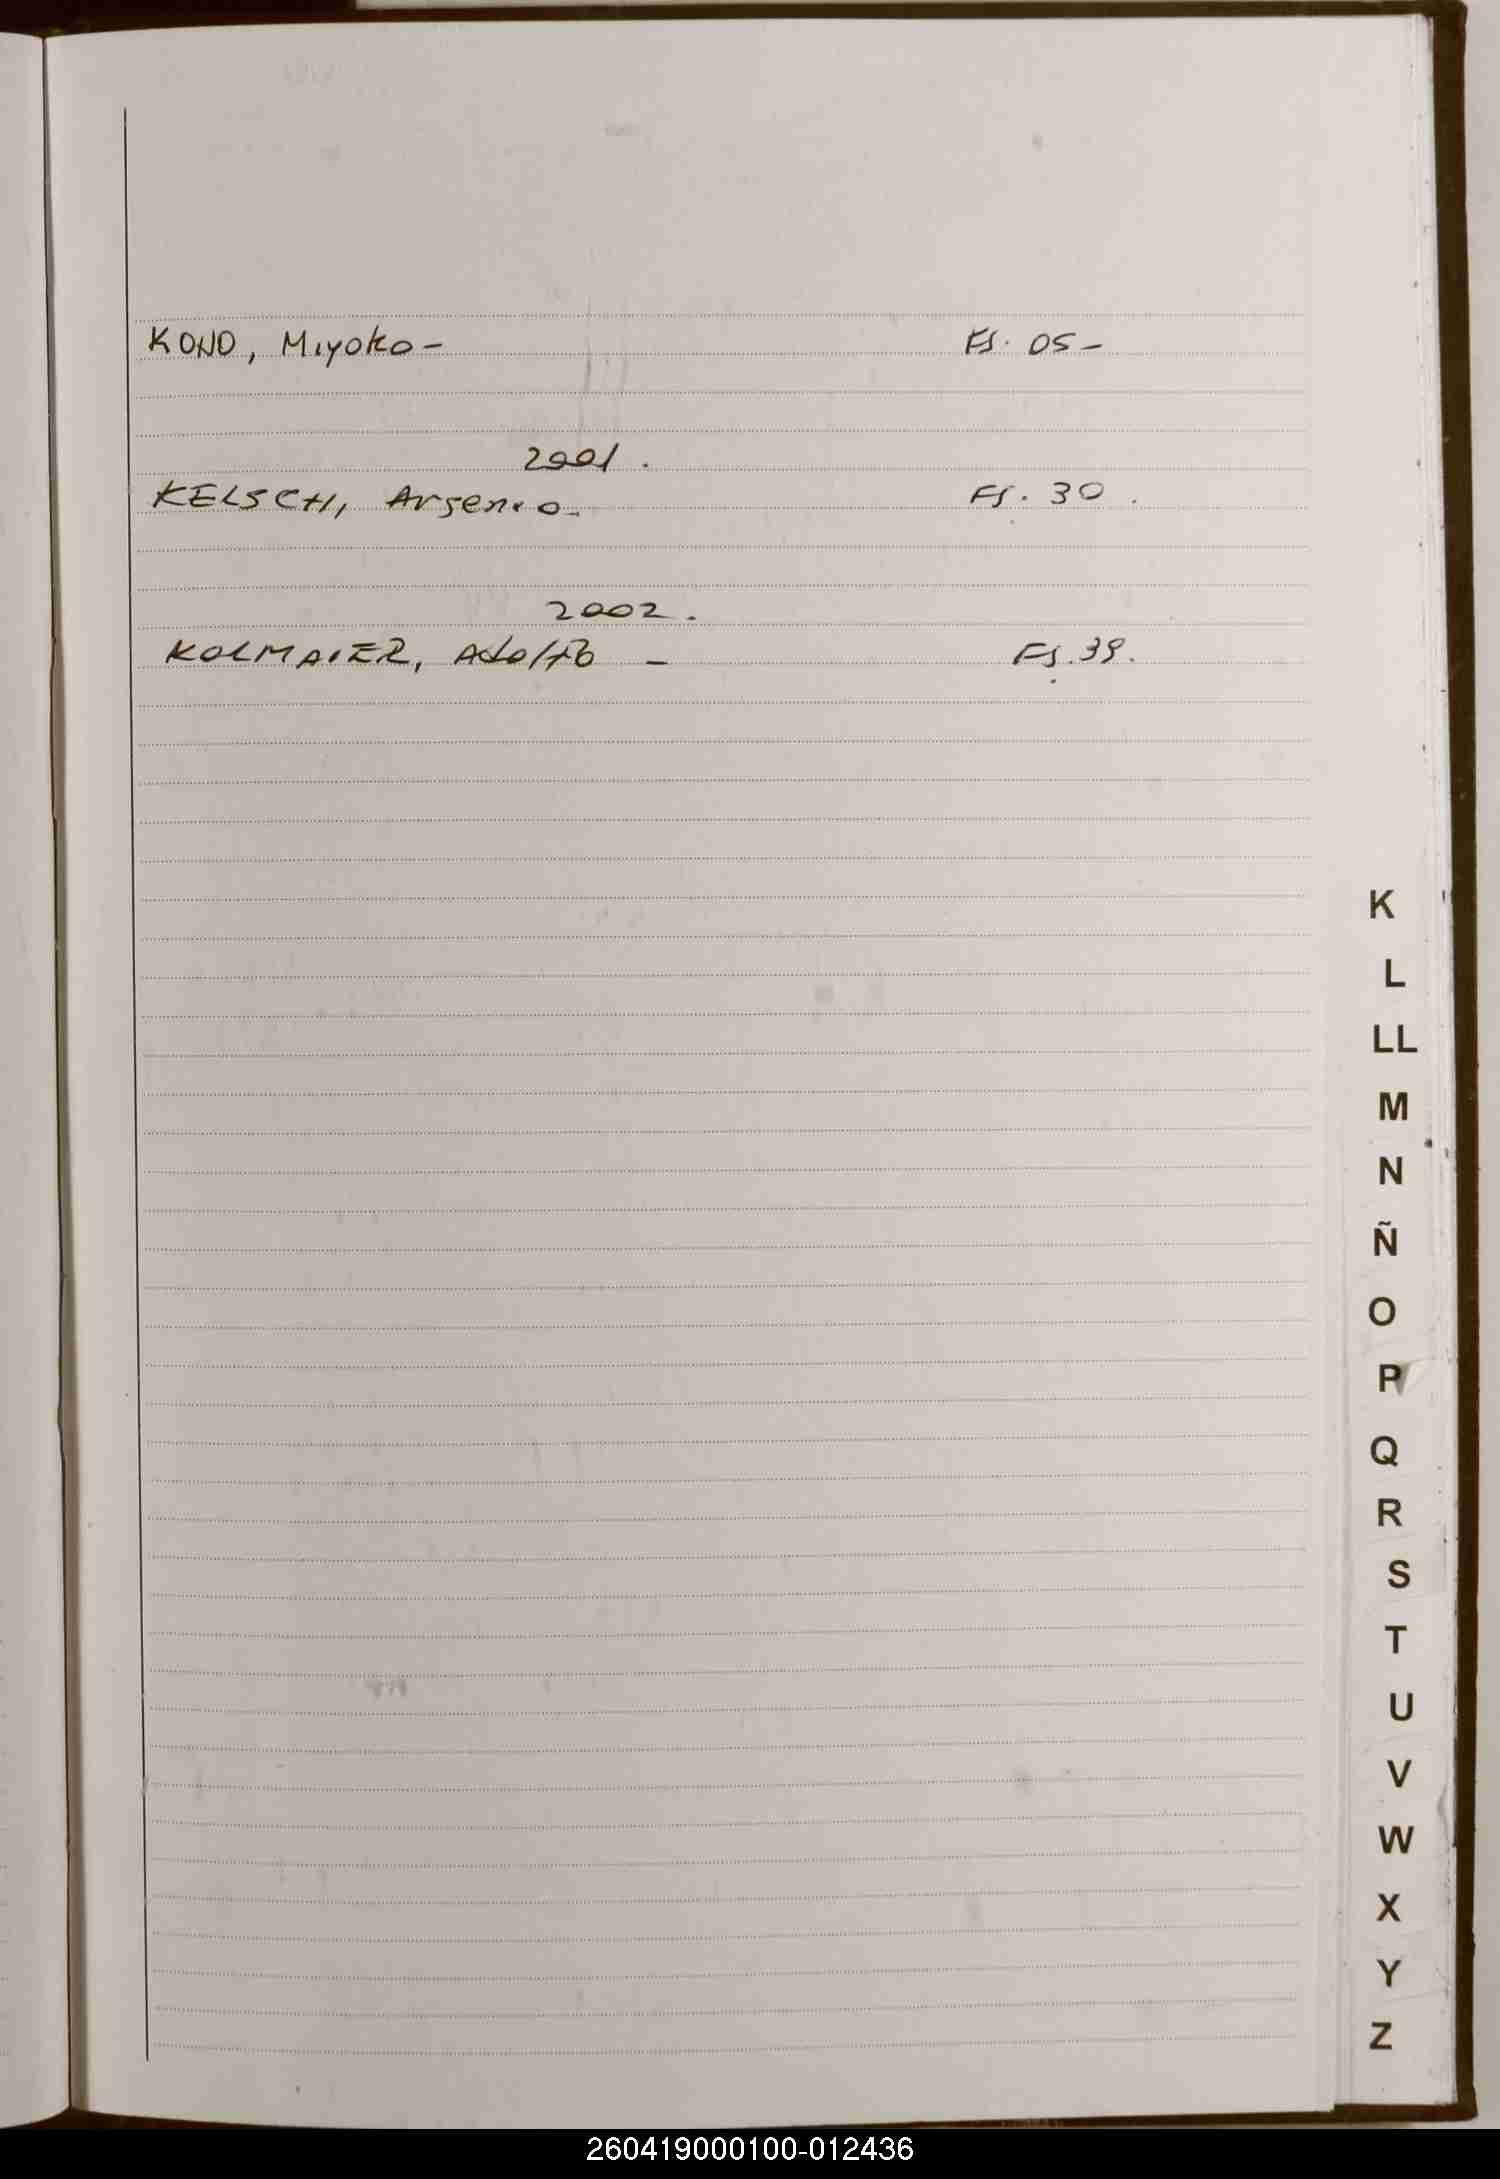 KONO, Miyoko - Fs. 05 -
2001.
KELSCH, Arsenio - Fs. 30.
2002.
KOLMAIER, Adolfo - Fs. 39.
K
L
LL
M
N
Ñ
O
P
Q
R
S
T
U
V
W
X
Y
Z
260419000100-012436